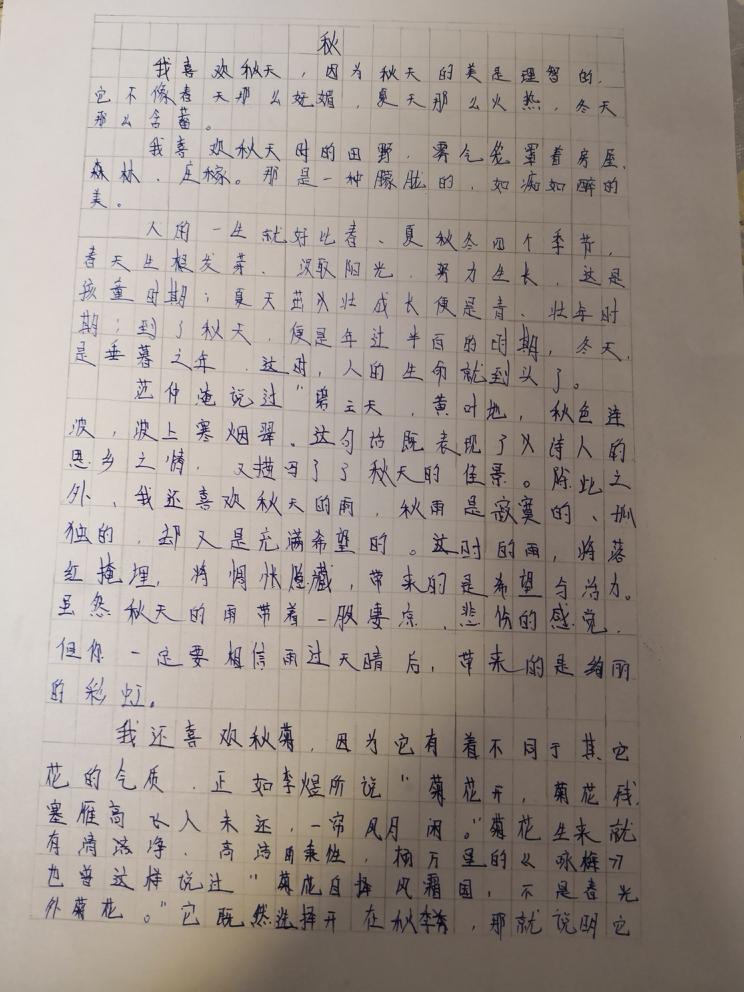 秋
我喜欢秋天，因为秋天的美是理智的，
它不像春天那么妩媚，夏天那么火热，冬天
那么含蓄。
我喜欢秋天时的田野，雾气笼罩着房屋、
森林、庄稼。那是一种朦胧的，如痴如醉的
美。
人的一生就好比春、夏秋冬四个季节，
春天生根发芽、汲取阳光，努力生长，这是
孩童时期；夏天茁壮成长便是青、壮年时
期；到了秋天，便是年过半百的时期，冬天，
是垂暮之年，这时，人的生命就到头了。
范仲淹说过"碧云天，黄叶地，秋色连
波，波上寒烟翠。这句话既表现了诗人的
思乡之情，又描写了了秋天的佳景。除此之
外，我还喜欢秋天的雨，秋雨是寂寞的、孤
独的，却又是充满希望的。这时的雨，将落
红掩埋，将惆怅隐藏，带来的是希望与活力。
虽然秋天的雨带着一股凄凉、悲伤的感觉，
但你一定要相信雨过天晴后，带来的是绚丽
的彩虹。
我还喜欢秋菊，因为它有着不同于其它
花的气质，正如李煜所说"菊花开，菊花残，
塞雁高飞人未还，一帘风月闲。"菊花生来就
有清洁净、高洁的秉性，杨万里的《咏梅》
也曾这样说过"菊花自择风霜国，不是春光
外菊花。"它既然选择开在秋季，那就说明它